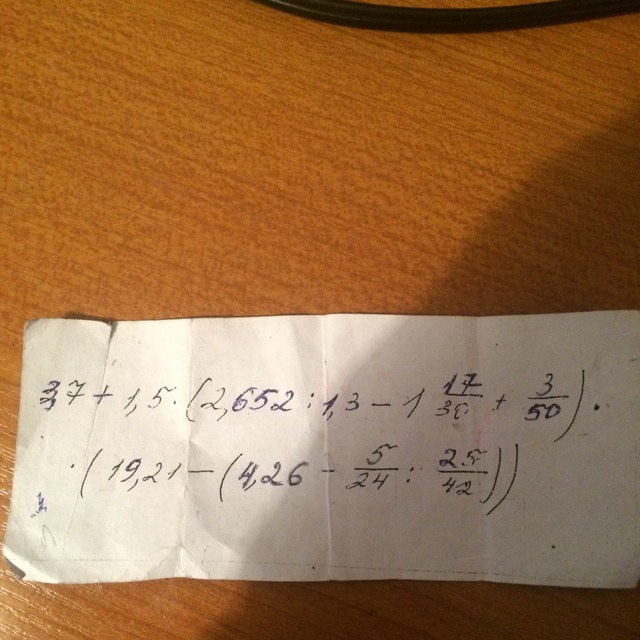 3,7 + 1,5 · (2,652 : 1,3 − 1 17/30 + 3/50) ·
· (19,21 − (4,26 − 5/24 : 25/42))